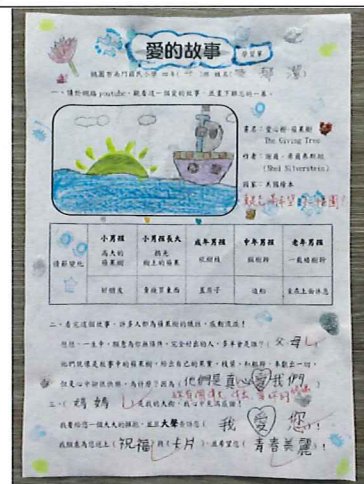 愛的故事
學習單
桃園市南門國民小學 四年( )班 姓名:
一、請於網路youtube，觀看這一個愛的故事，並畫下難忘的一幕。
書名：愛心樹-蘋果樹
The Giving Tree
作者：謝爾．希爾弗斯坦
(Shel Silverstein)
國家：美國繪本
小男孩 小男孩長大 成年男孩 中年男孩 老年男孩
情節變化 高大的 蘋果樹 摘光 樹上的蘋果 砍樹枝 鋸樹幹 一截矮樹幹
好朋友 拿後買東西 蓋房子 造船 坐在上面休息
二、看完這個故事，許多人都為蘋果樹的犧牲，感動流淚！
想想，一生中，願意為你無條件、完全付出的人，多半會是誰？( 父母 )
他們就像是故事中的蘋果樹，給出自己的果實、樹葉、和軀幹，奉獻出一切，
但是心中卻很快樂，為什麼？因為 ( 他們是真心愛我們 )
三、( 媽媽 )是我的大樹，我心中充滿感謝！
我要給您一個大大的擁抱，並且大聲告訴您( 我愛您 )！
我願意為您送上( 祝福 )與( 卡片 )，並希望您( 青春美麗 )！